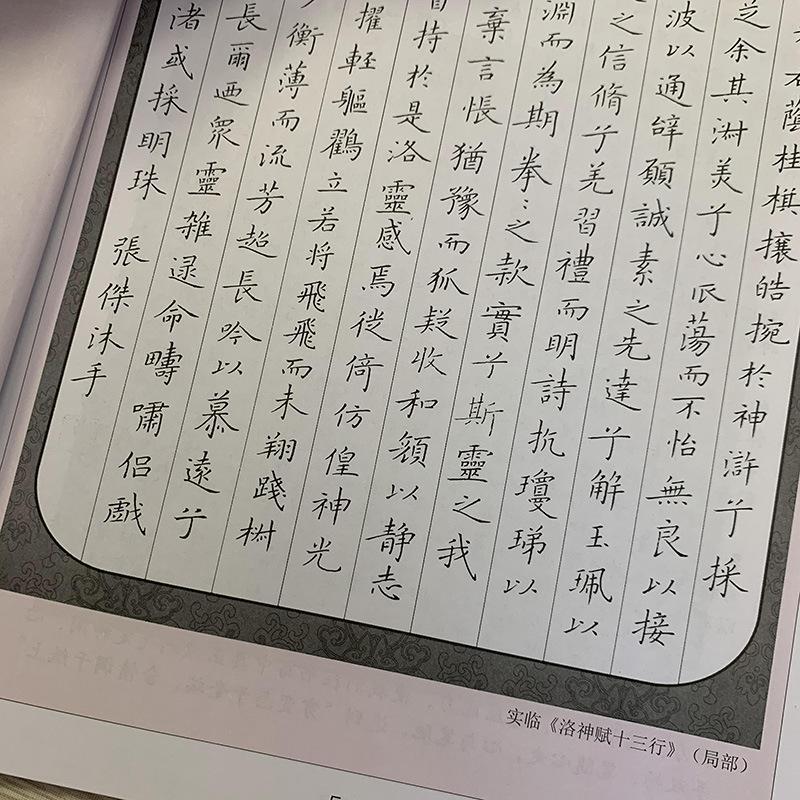 蔭桂棋攘皓捥於神滸兮採
芝余其淑美兮心辰蕩而不怡無良以接
波以通辤願誠素之先達兮解玉珮以
之信脩兮羌習禮而明詩抗瓊珶以
淵而為期拳〻之款實兮斯靈之我
棄言悵猶豫而狐疑收和顏以静志
持於是洛靈感焉徙倚仿偟神光
擢輊軀鸛立若将飛飛而未翔踐椒
衡薄而流芳超長吟以慕遠兮
長爾迺眾靈雑逯命疇嘯侣戲
渚或採明珠 張傑沐手
实临《洛神赋十三行》（局部）